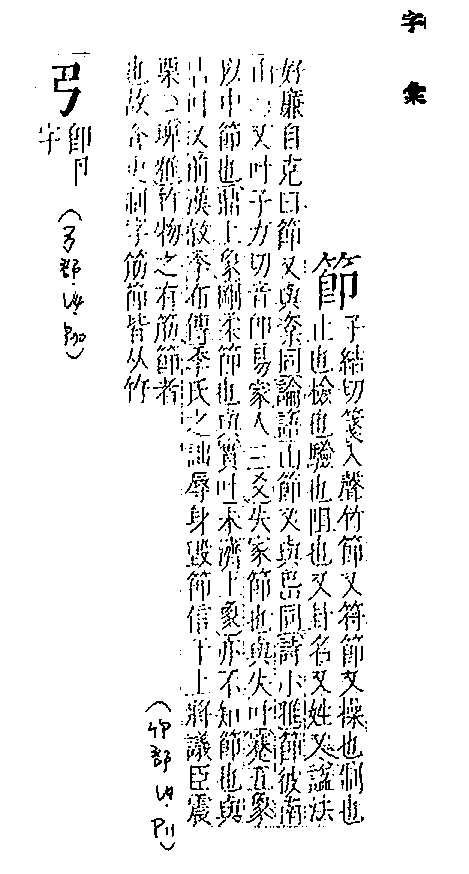 字彙
節
子結切箋入聲竹節又符節又操也制也
止也檢也驗也阻也又卦名又姓又諡法
好廉自克曰節又與楶同論語山節又與岊同詩小雅節彼南
山又叶子力切音卽易家人三爻失家節也與失叶蹇五象
以中節也鼎上象剛柔節也與實叶未濟上象亦不知節也與
叶又前漢敘季布傳季氏之詘辱身毀節信于上將議臣震
栗埤雅竹物之有筋節者
也故合史制字筋節皆从竹
卽
字